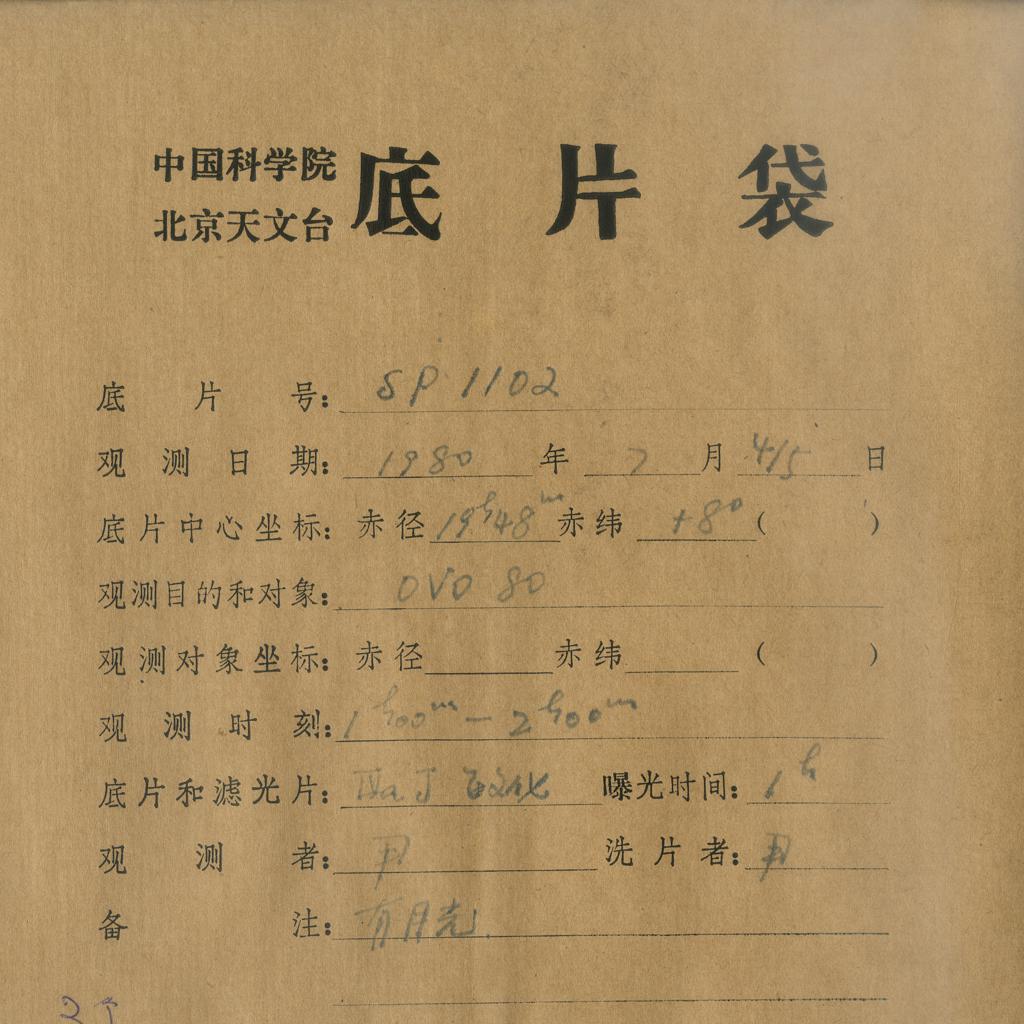 中国科学院
北京天文台
底片袋
底片号: SP 1102
观测日期: 1980 年 7 月 4/5 日
底片中心坐标: 赤径 19h48m 赤纬 +8° ( ′ )
观测目的和对象: OVO 80
观测对象坐标: 赤径 赤纬 ( )
观测时刻: 1h00m — 2h00m
底片和滤光片: IIa J 敏化 曝光时间: 1h
观测者: 洗片者:
备注: 有月光.
2个